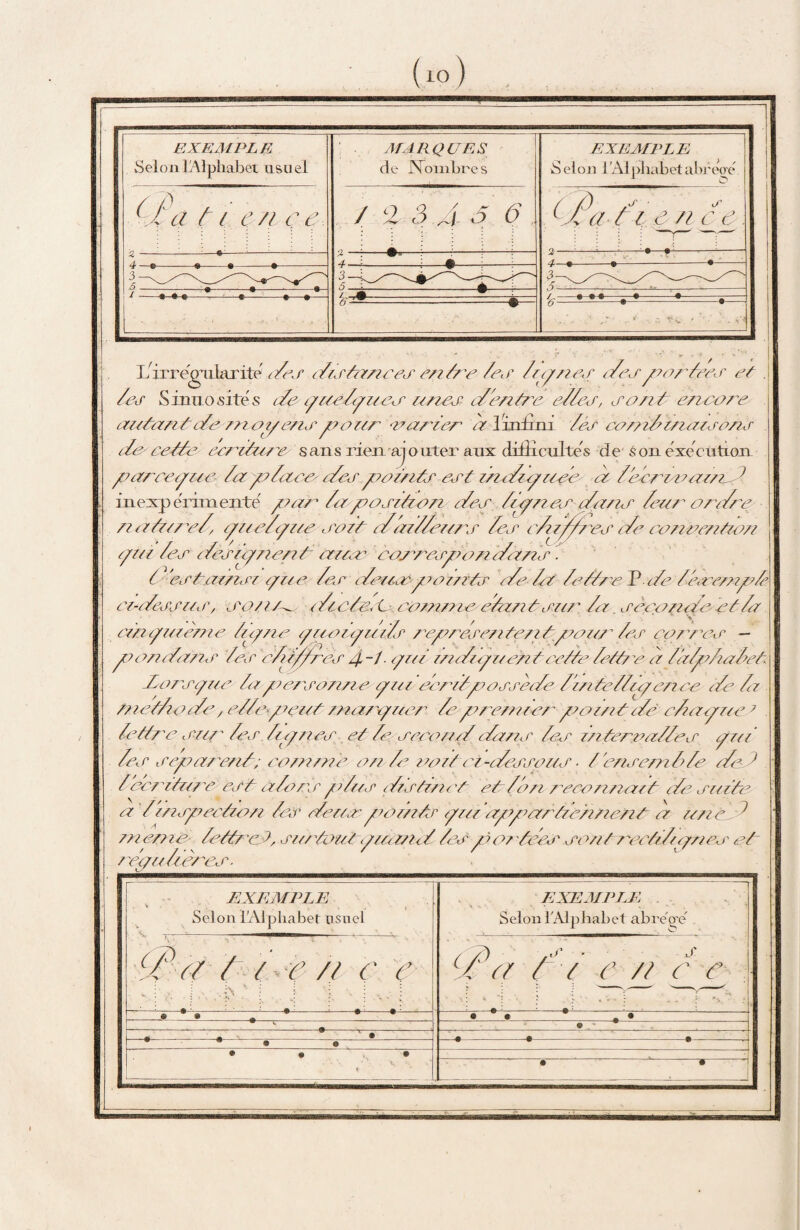 (10)
EXEMPLE
Selon l'Alphabet usuel
Patience
2
4
3
5
1
MARQUES
de Nombres
1 2 3 4 5 6
2
4
3
5
1
6
EXEMPLE
Selon l'Alphabet abrégé
Patience
2
4
3
5
1
6
L'irrégularité des distances entre les lignes des portées et
les Sinuosités de quelques unes d'entre elles, sont encore
autant de moyens pour varier à l'infini les combinaisons
de cette écriture sans rien ajouter aux difficultés de son éxécution
parceque la place des points est indiquée à l'écrivain
inexpérimenté par la position des lignes dans leur ordre
naturel, quelque soit d'ailleurs les chiffres de convention
qui les désignent aux correspondans.
C'est ainsi que les deux points de la lettre P de l'éxemple
ci-dessus, sont dictés comme étant sur la seconde et la
cinquième ligne quoiquils représentent pour les corres –
pondans les chiffres 4-1. qui indiquent cette lettre à l'alphabet.
Lorsque la personne qui écrit possède l'intelligence de la
méthode, elle peut marquer le premier point de chaque
lettre sur les lignes et le second dans les intervalles qui
les séparent; comme on le voit ci-dessous. l'ensemble de
l'écriture est alors plus distinct et l'on reconnait de suite
à l'inspection les deux points qui appartiennent à une
même lettre, surtout quand les portées sont rectilignes et
régulières.
EXEMPLE
Selon l'Alphabet usuel
Patience
EXEMPLE
Selon l'Alphabet abrégé
Patience